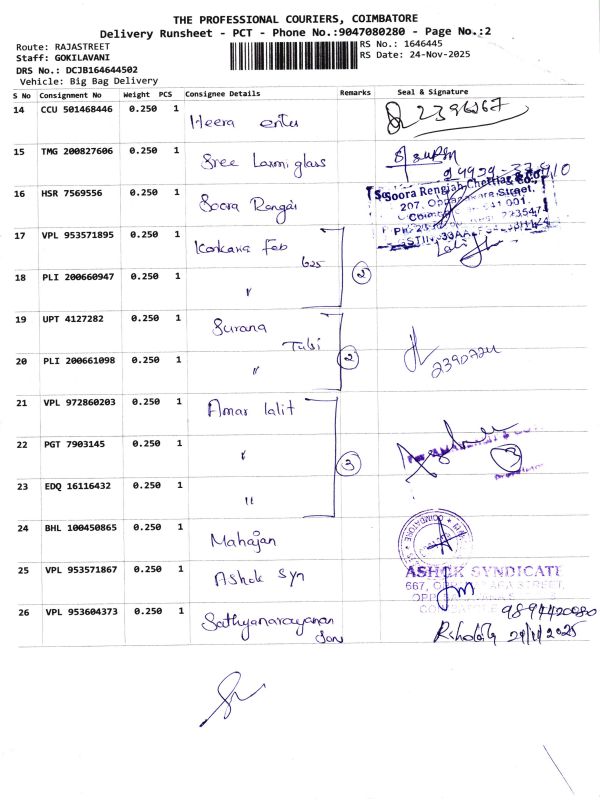 THE PROFESSIONAL COURIERS, COIMBATORE
Delivery Runsheet - PCT - Phone No.:9047080280 - Page No.:2
Route: RAJASTREET
RS No.: 1646445
Staff: GOKILAVANI
RS Date: 24-Nov-2025
DRS No.: DCJB164644502
Vehicle: Big Bag Delivery
S No Consignment No Weight PCS Consignee Details Remarks Seal & Signature
14 CCU 501468446 0.250 1 Heera enter 2396267
15 TMG 200827606 0.250 1 Sree Laxmi glass
16 HSR 7569556 0.250 1 Soora Rengai
Soora Rengiah Chettiar & Co.,
207, Oppanakara Street,
17 VPL 953571895 0.250 1 Kankana Feb
625
2
18 PLI 200660947 0.250 1 "
19 UPT 4127282 0.250 1 Surana
Tulsi
2 2390724
20 PLI 200661098 0.250 1 "
21 VPL 972860203 0.250 1 Amar lalit
22 PGT 7903145 0.250 1 "
3 3
23 EDQ 16116432 0.250 1 "
24 BHL 100450865 0.250 1 Mahajan
COIMBATORE
25 VPL 953571867 0.250 1 Ashok Syn
ASHOK SYNDICATE
667, OPPANAKARA STREET,
COIMBATORE
26 VPL 953604373 0.250 1 Sathyanarayanan
Sons
9894420080
24/11/2025